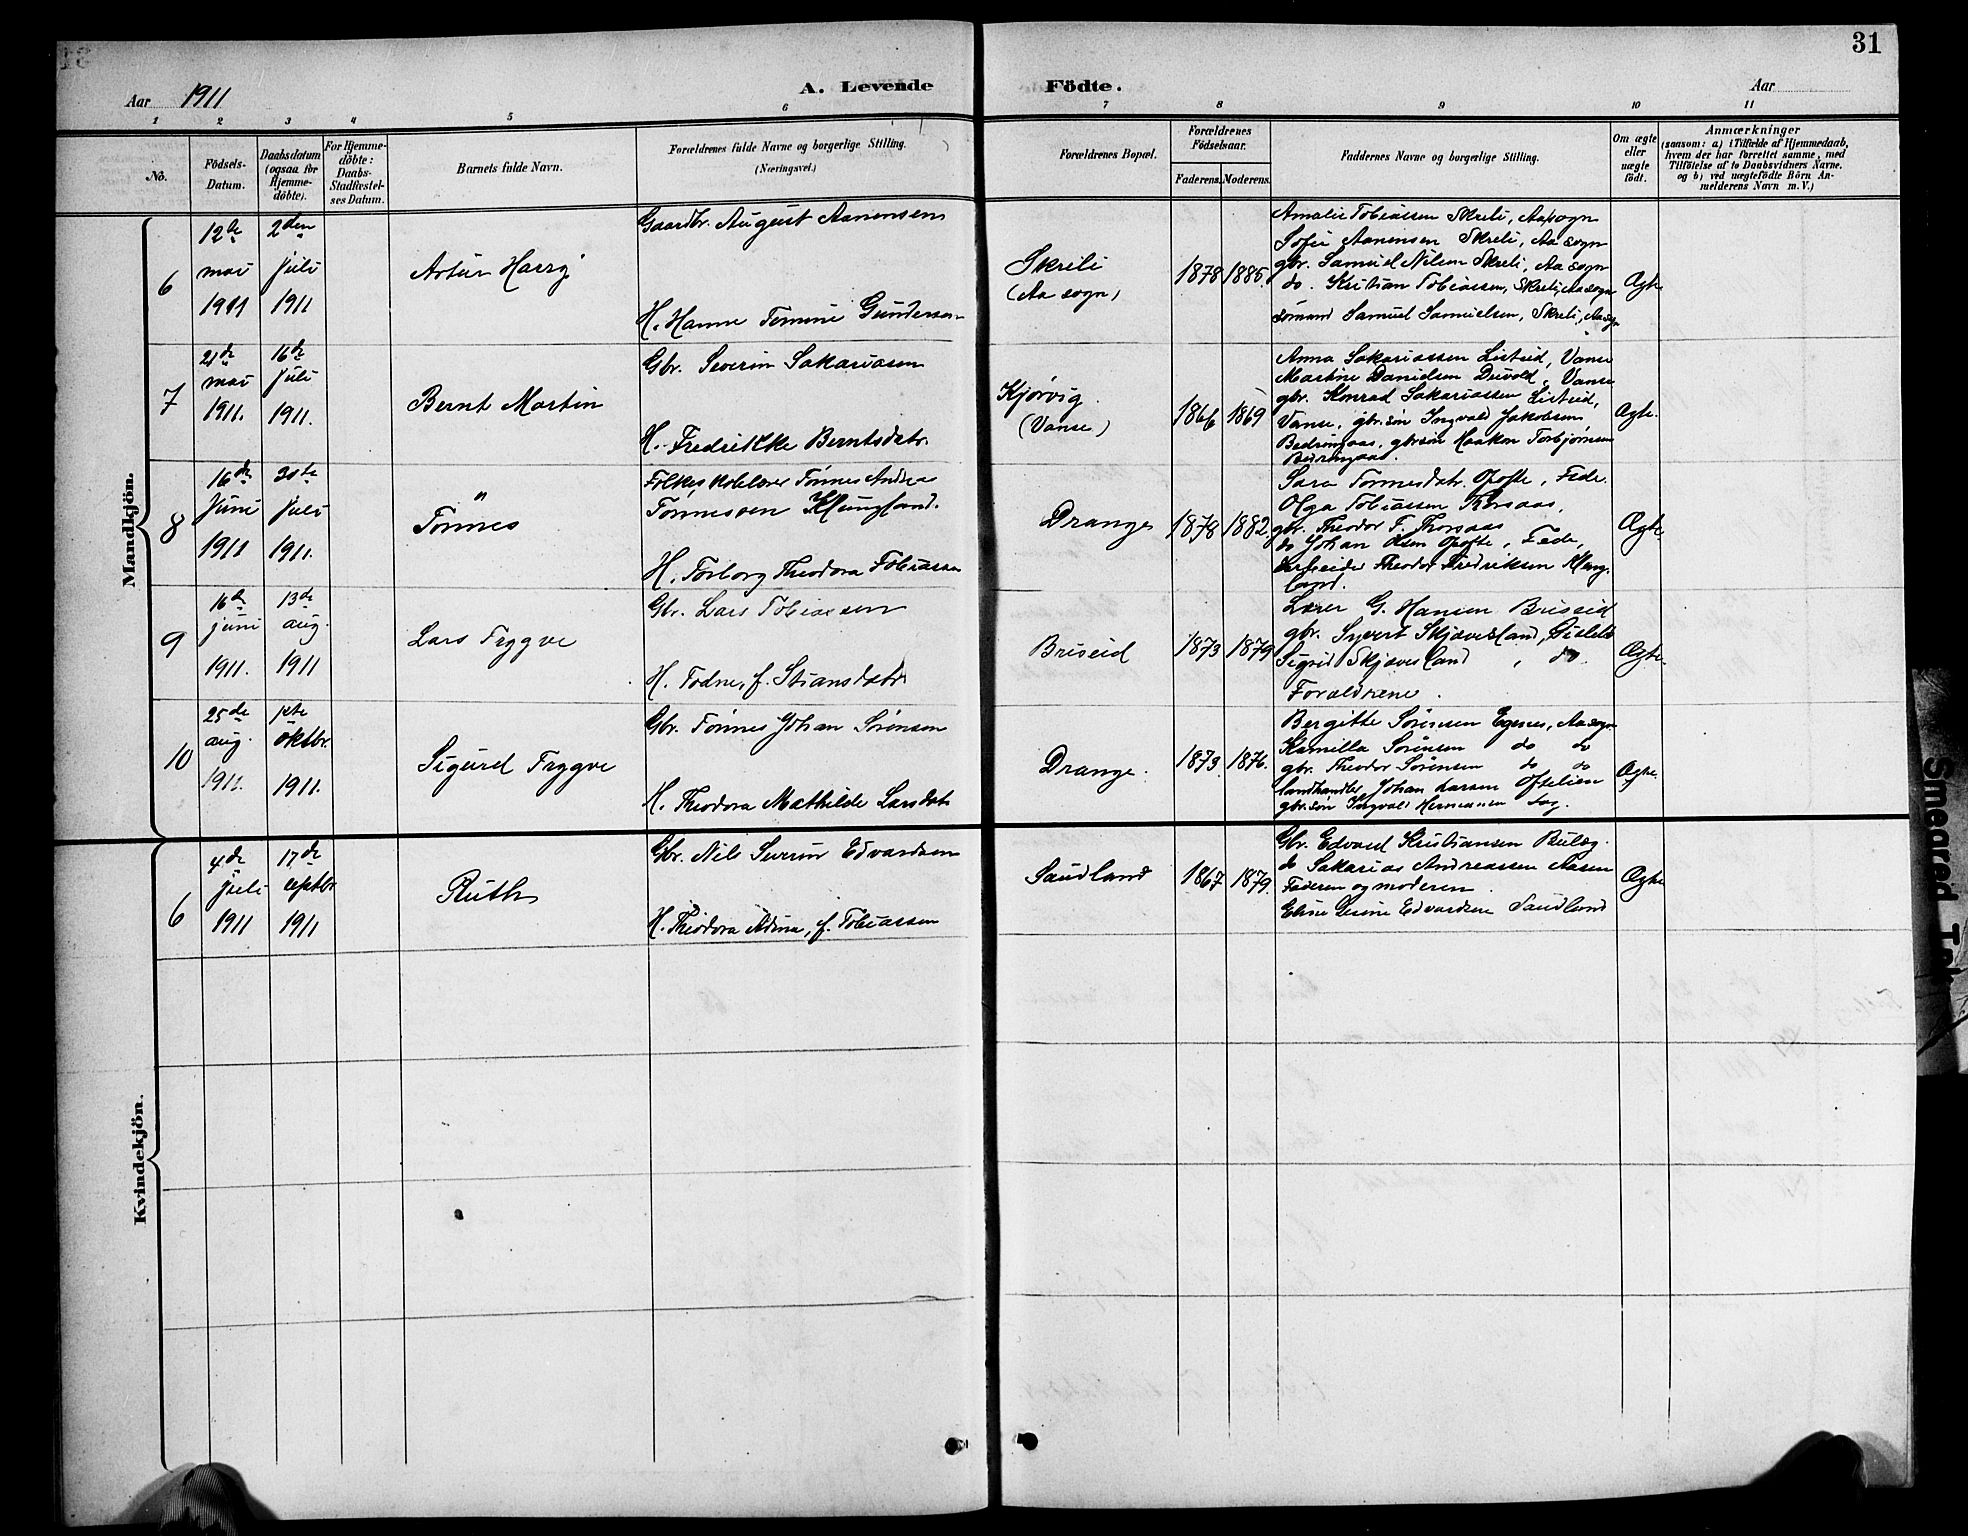 31
Aar 1911
A. Levende Födte.
Aar
1 2 3 4 5 6 7 8 9 10 11
No.
Födsels-
Datum.
Daabsdatum
(ogsaa for
Hjemme-
döbte).
For Hjemme-
döbte:
Daabs-
Stadfæstel-
ses Datum.
Barnets fulde Navn.
Forældrenes fulde Navne og borgerlige Stilling.
(Næringsvei.)
Forældrenes Bopæl.
Forældrenes
Födselsaar.
Faderens. Moderens.
Faddernes Navne og borgerlige Stilling.
Om ægte
eller
uægte
födt.
Anmærkninger
(saasom: a) i Tilfælde af Hjemmedaab,
hvem der har forrettet samme, med
Tilföielse af to Daabsvidners Navne.
og b) ved uægtefödte Börn An-
melderens Navn m. V.)
Mandkjön.
6
12te
mai
1911
2den
juli
1911
Artur Harry
Gaardbr. August Aanensen
H. Hanne Temine Gundersen
Skreli
(Aa sogn)
1878 1885.
Amalie Tobiassen Skreli, Aa sogn
Sofie Aanensen Skreli, Aa sogn
gbr. Samuel Nilsen Skreli, Aa sogn
do. Kristian Tobiassen, Skreli, Aa sogn
sømand Samuel Samuelsen, Skreli, Aa sogn
Ægte
7
21de
mai
1911.
16de
juli
1911.
Bernt Martin
Gbr. Severin Sakariasen
H. Fredrikke Berntsdatr.
Kjørvig
(Vanse)
1866 1869
Anna Sakariassen Listeid, Vanse
Martine Danielsen Deivold, Vanse
gbr. Konrad Sakariassen Listeid,
Vanse, gbr.søn Ingvald Jakobsen
Bedringaas, gbr.søn Haakon Torbjørnsen
Bedringaas.
Ægte.
8
16de
juni
1911
30te
juli
1911.
"
Tönnes
Folkeskolelærer Tönnes Andreas
Tönnesen Klungland.
H. Torborg Theodora Tobiassen
Drange
1878 1882.
Sara Tönnesdatr. Opofte, Fede.
Olga Tobiassen Thorsaas,
gbr. Theodor T. Thorsaas
do Johan Olsen Opofte, Fede,
arbeider Theodor Fredriksen Klung-
land.
Ægte.
9
16de
juni
1911.
13de
aug.
1911
Lars Tryggve
Gbr. Lars Tobiassen
H. Todne, f. Stiansdatr
Briseid
1873 1879
Lærer G. Hansen Briseid
gbr. Syvert Skjævesland,
Sigrid Skjævesland, do.
Forældrene.
Ægte.
10
25de
aug.
1911.
1ste
oktbr.
1911.
Sigurd Tryggve
Gbr. Tönnes Johan Sörensen
H. Theodora Mathilde Larsdatr
Drange.
1873. 1876.
Bergitte Sörensen Egenes, Aa sogn.
Kamilla Sörensen do do
gbr. Theodor Sörensen do do
landhandler Johan Larsen Oftelien
gbr.søn Ingvald Hermansen
Ægte.
Kvindekjön.
6
4de
juli
1911
17de
septbr
1911
Ruth
Gbr. Nils Severin Edvardsen
H. Theodora Adine, f. Tobiassen
Saudland
1867 1879.
Gbr. Edvard Kristiansen Buleg.
do Sakarias Andreassen Aasen
Faderen og moderen.
Eline Gesine Edvardsen Saudland
Ægte
Smeared Ink